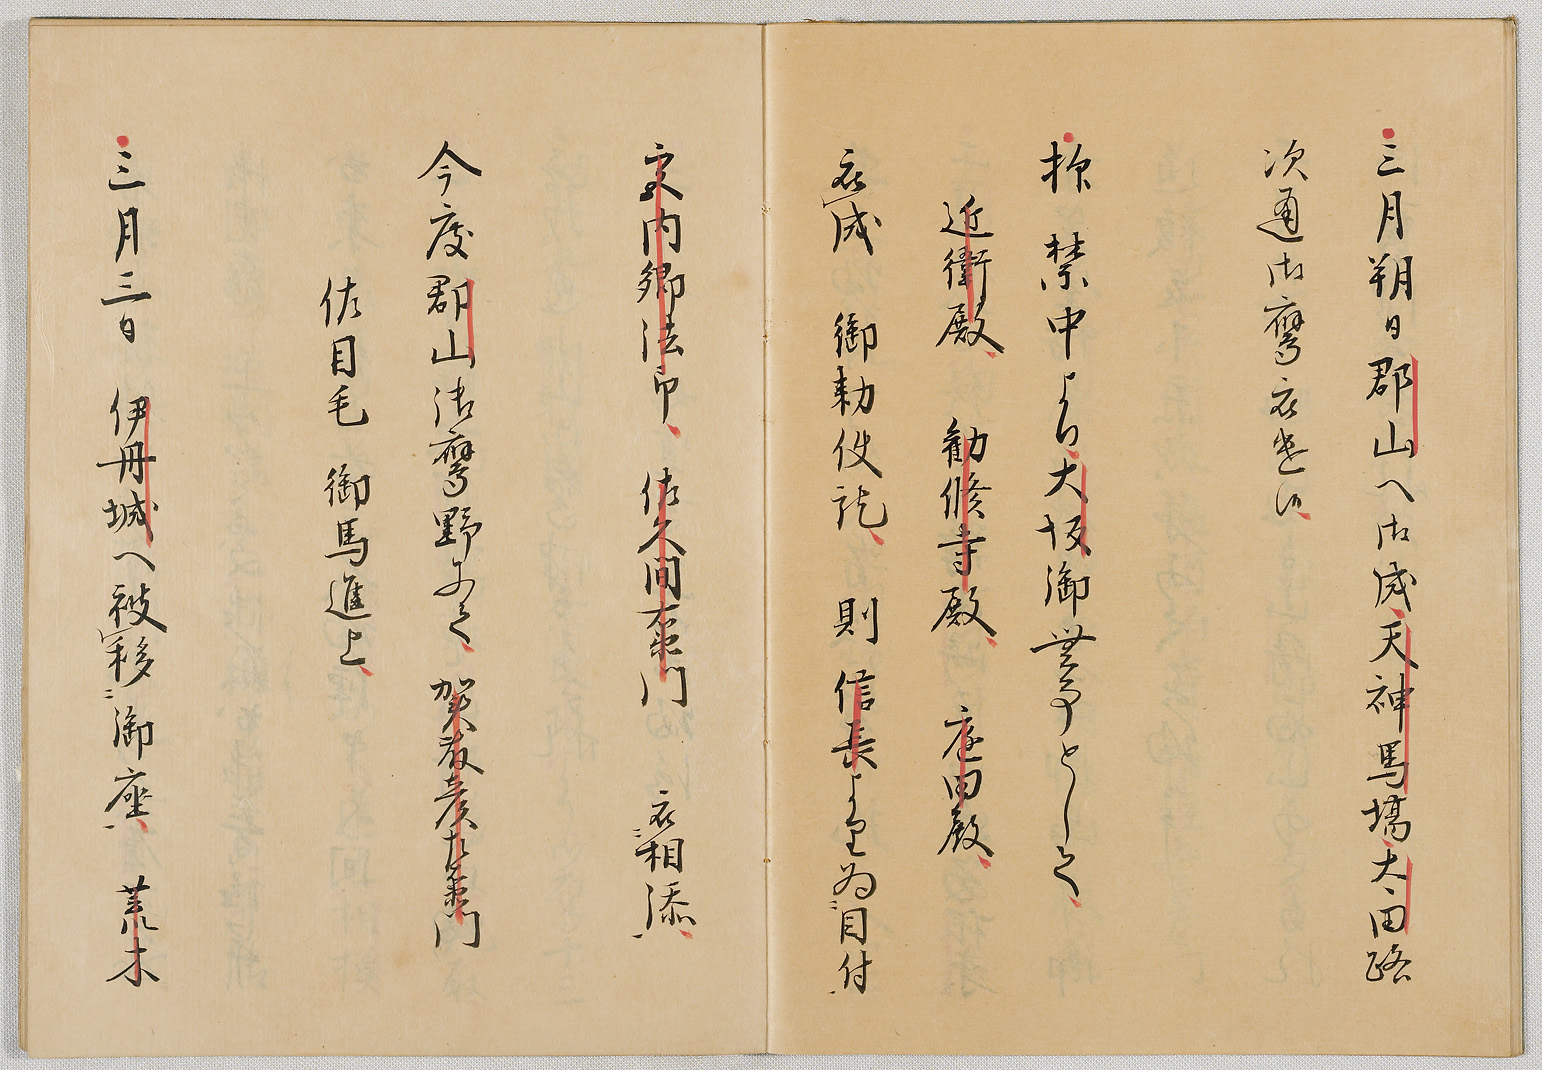 三月朔日郡山へ御成天神馬場大田路
次通御鷹被遣候
抑禁中より大坂御無事として
近衛殿勧修寺殿庭田殿
被成御勅使訖則信長より為目付
安内卿法印佐久間右衛門被相添
今度郡山御鷹野にて賀藤彦左衛門
佐目毛御馬進上
三月三日伊丹城へ被移御座荒木